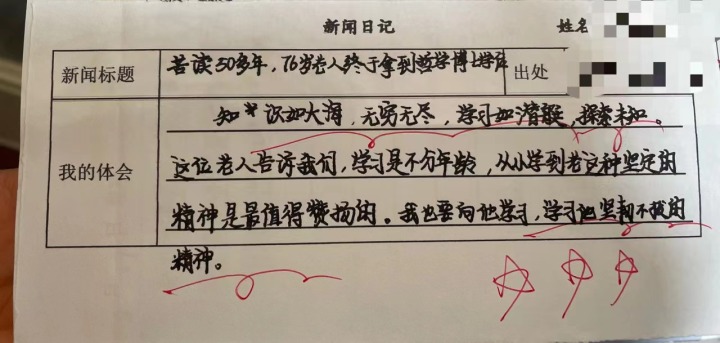 新闻日记 姓名
新闻标题 苦读50多年，76岁老人终于拿到哲学博士学位 出处
知识如大海，无穷无尽，学习如潜艇，探索未知。
我的体会 这位老人告诉我们，学习是不分年龄，从小学到老这种坚定的
精神是最值得赞扬的。我也要向他学习，学习他坚韧不拔的
精神。